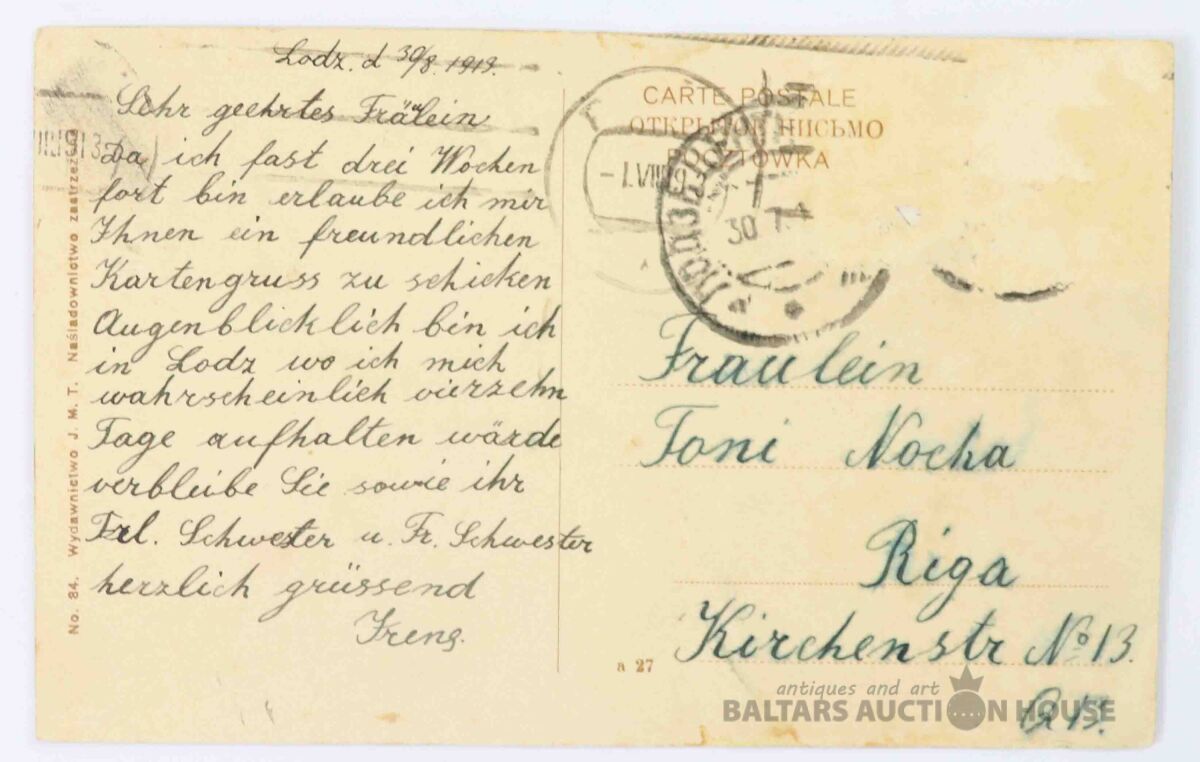 Lodz. d 30/8. 1913.
Sehr geehrtes Fräulein
Da ich fast drei Wochen
fort bin erlaube ich mir
Ihnen ein freundlichen
Kartengruss zu schicken
Augenblicklich bin ich
in Lodz wo ich mich
wahrscheinlich vierzehn
Tage aufhalten wärde
verbleibe Sie sowie ihr
Frl. Schwester u. Fr. Schwester
herzlich grüssend
No. 84. Wydawnictwo J. M. T. Naśladownictwo zastrzeżone
CARTE POSTALE
ОТКРЫТОЕ ПИСЬМО
POCZTÓWKA
-1.VIII
30 7
Fraulein
Toni Nocha
Riga
Kirchenstr No 13.
a 27
antiques and art
BALTARS AUCTION HOUSE